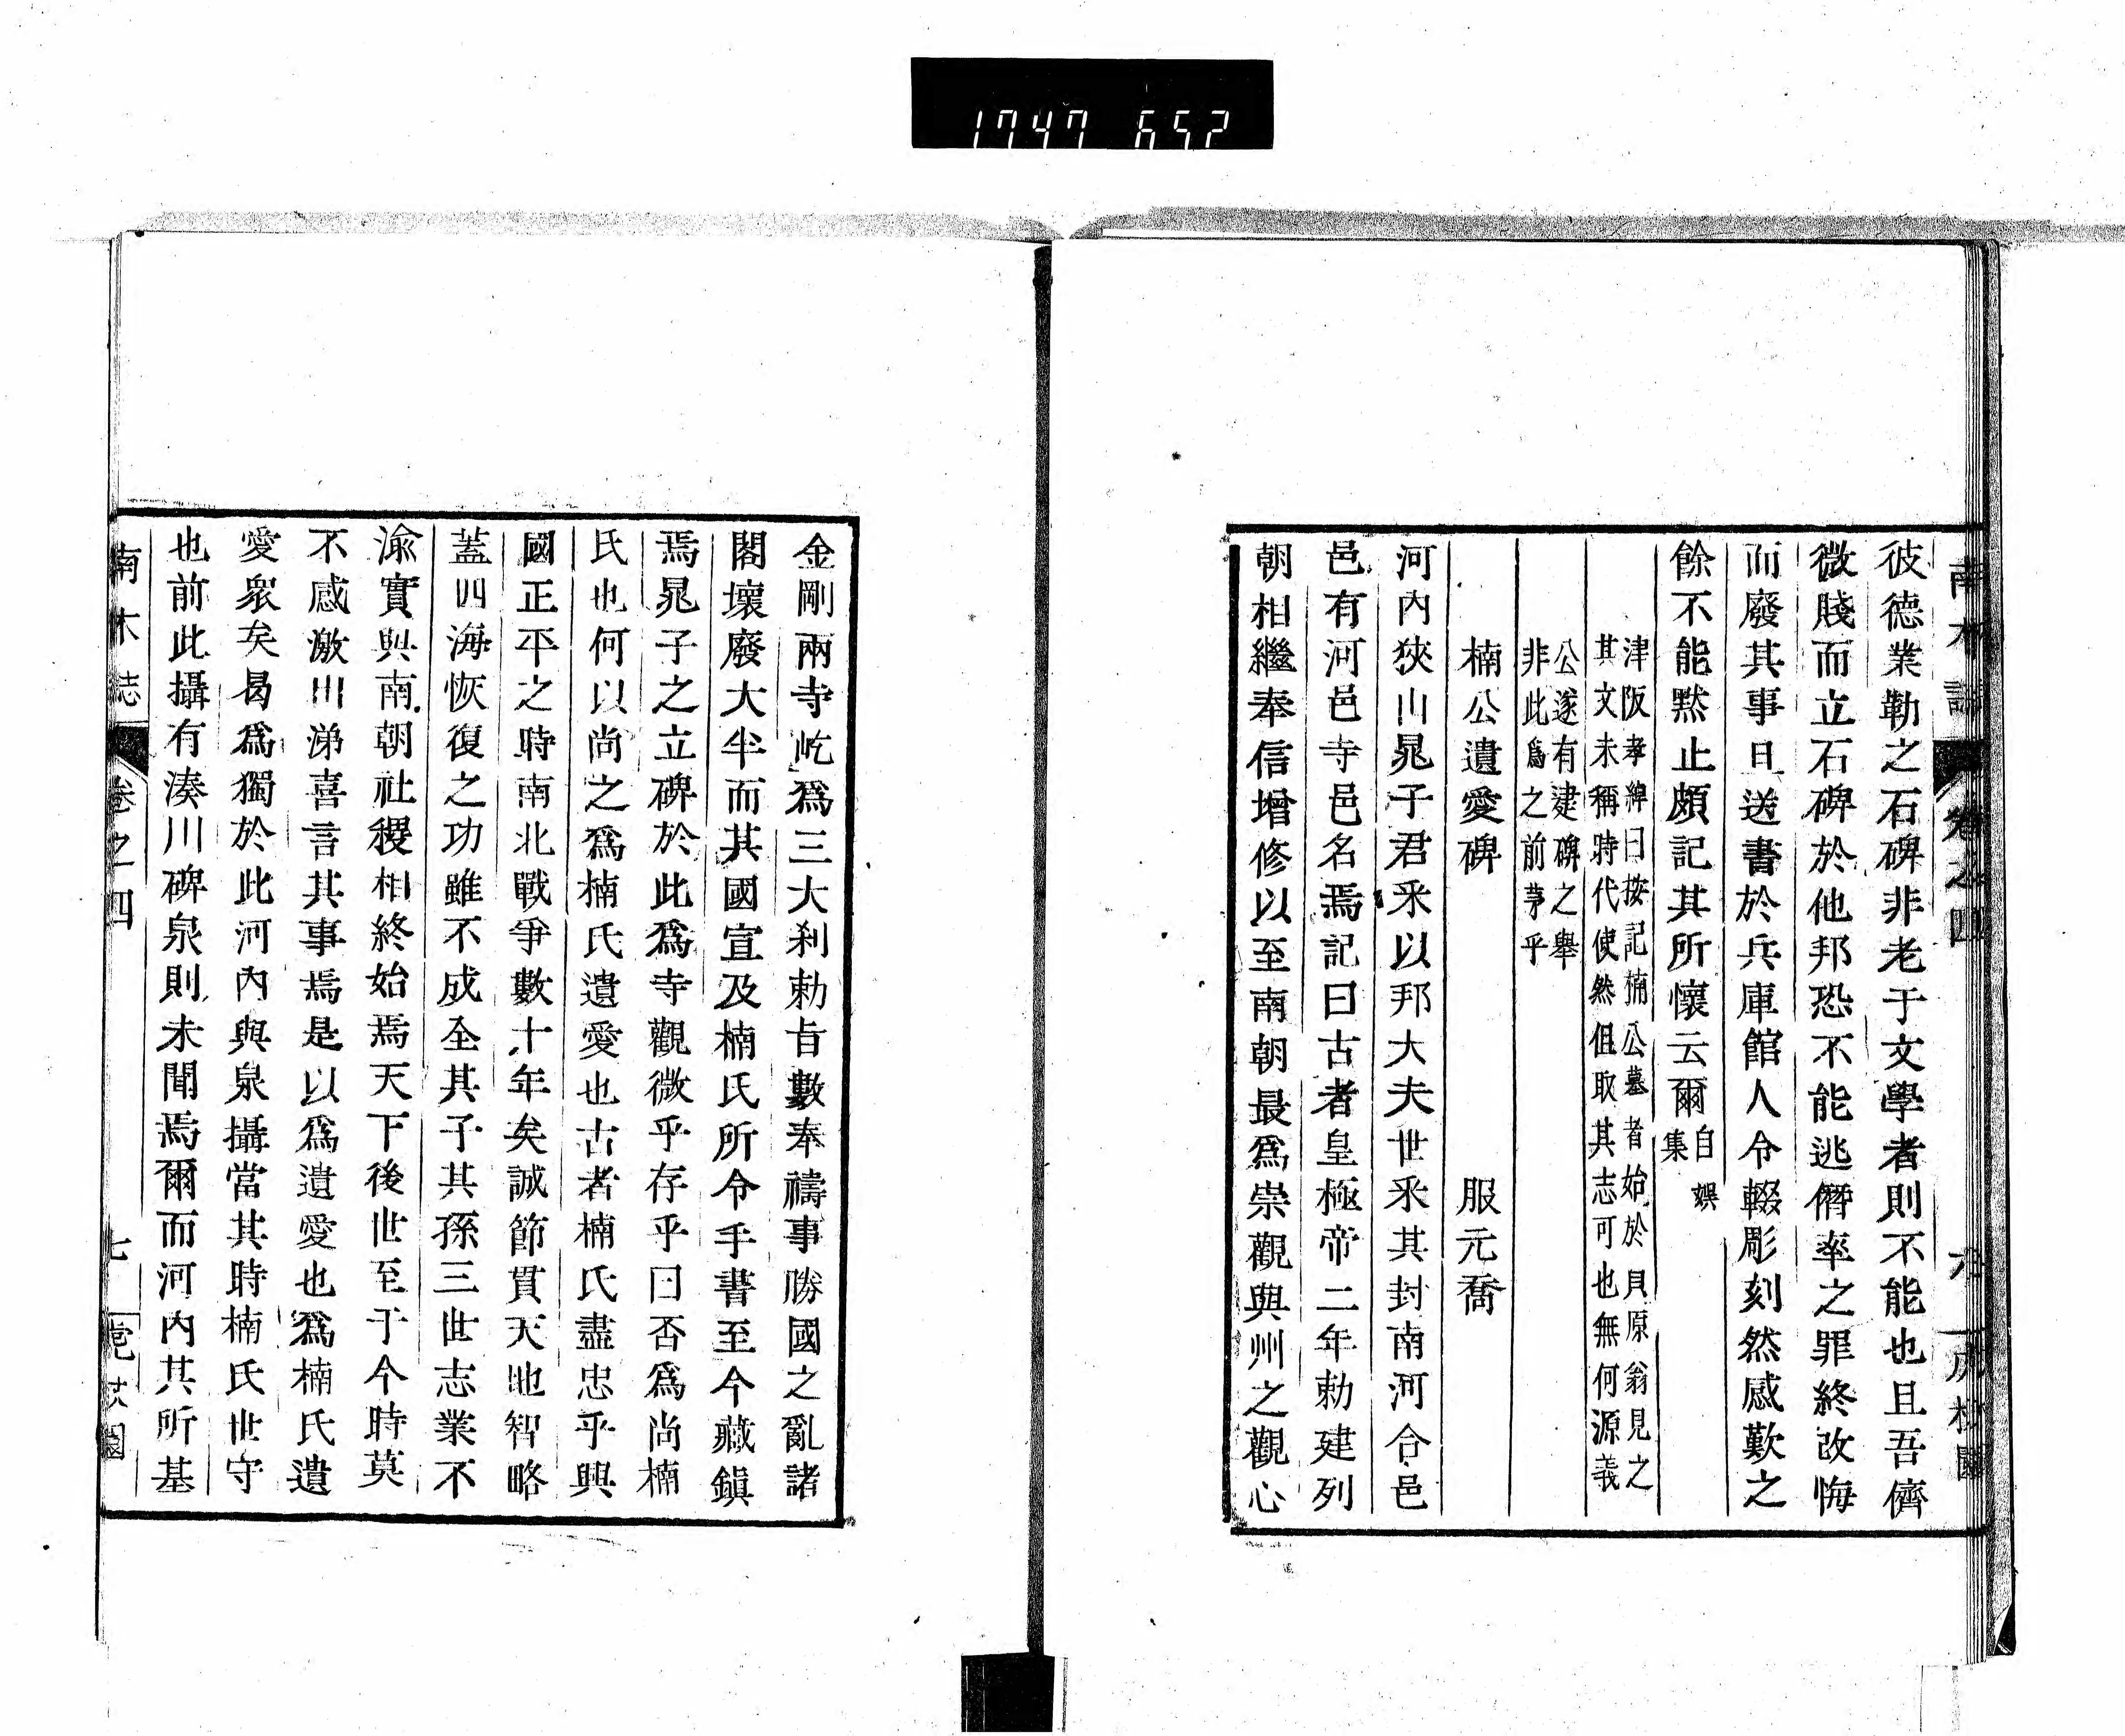 1747 652
南木誌 卷之四 六
彼德業勒之石碑非老于文學者則不能也且吾儕
微賤而立石碑於他邦恐不能逃僭率之罪終改悔
而廢其事日送書於兵庫館人令輟彫刻然感歎之
餘不能黙止頗記其所懷云爾自娯集
津阪孝綽曰按記楠公墓者始於貝原翁見之
其文未稱時代使然但取其志可也無何源義
公遂有建碑之舉
非此爲之前茅乎
楠公遺愛碑 服元喬
河内狹山晁子君釆以邦大夫世釆其封南河合邑
邑有河邑寺邑名焉記曰古者皇極帝二年勅建列
朝相繼奉信增修以至南朝最爲崇觀與州之觀心
金剛兩寺屹爲三大刹勅旨數奉禱事勝國之亂諸
閣壞廢大半而其國宣及楠氏所令手書至今藏鎭
焉晁子之立碑於此爲寺觀微乎存乎曰否爲尚楠
氏也何以尚之爲楠氏遺愛也古者楠氏盡忠乎興
國正平之時南北戰爭數十年矣誠節貫天地智略
蓋四海恢復之功雖不成全其子其孫三世志業不
渝實與南朝社稷相終始焉天下後世至于今時莫
不感激川涕喜言其事焉是以爲遺愛也爲楠氏遺
愛衆矣曷爲獨於此河内與泉攝當其時楠氏世守
也前此攝有湊川碑泉則未聞焉爾而河内其所基
南木誌 卷之四 七